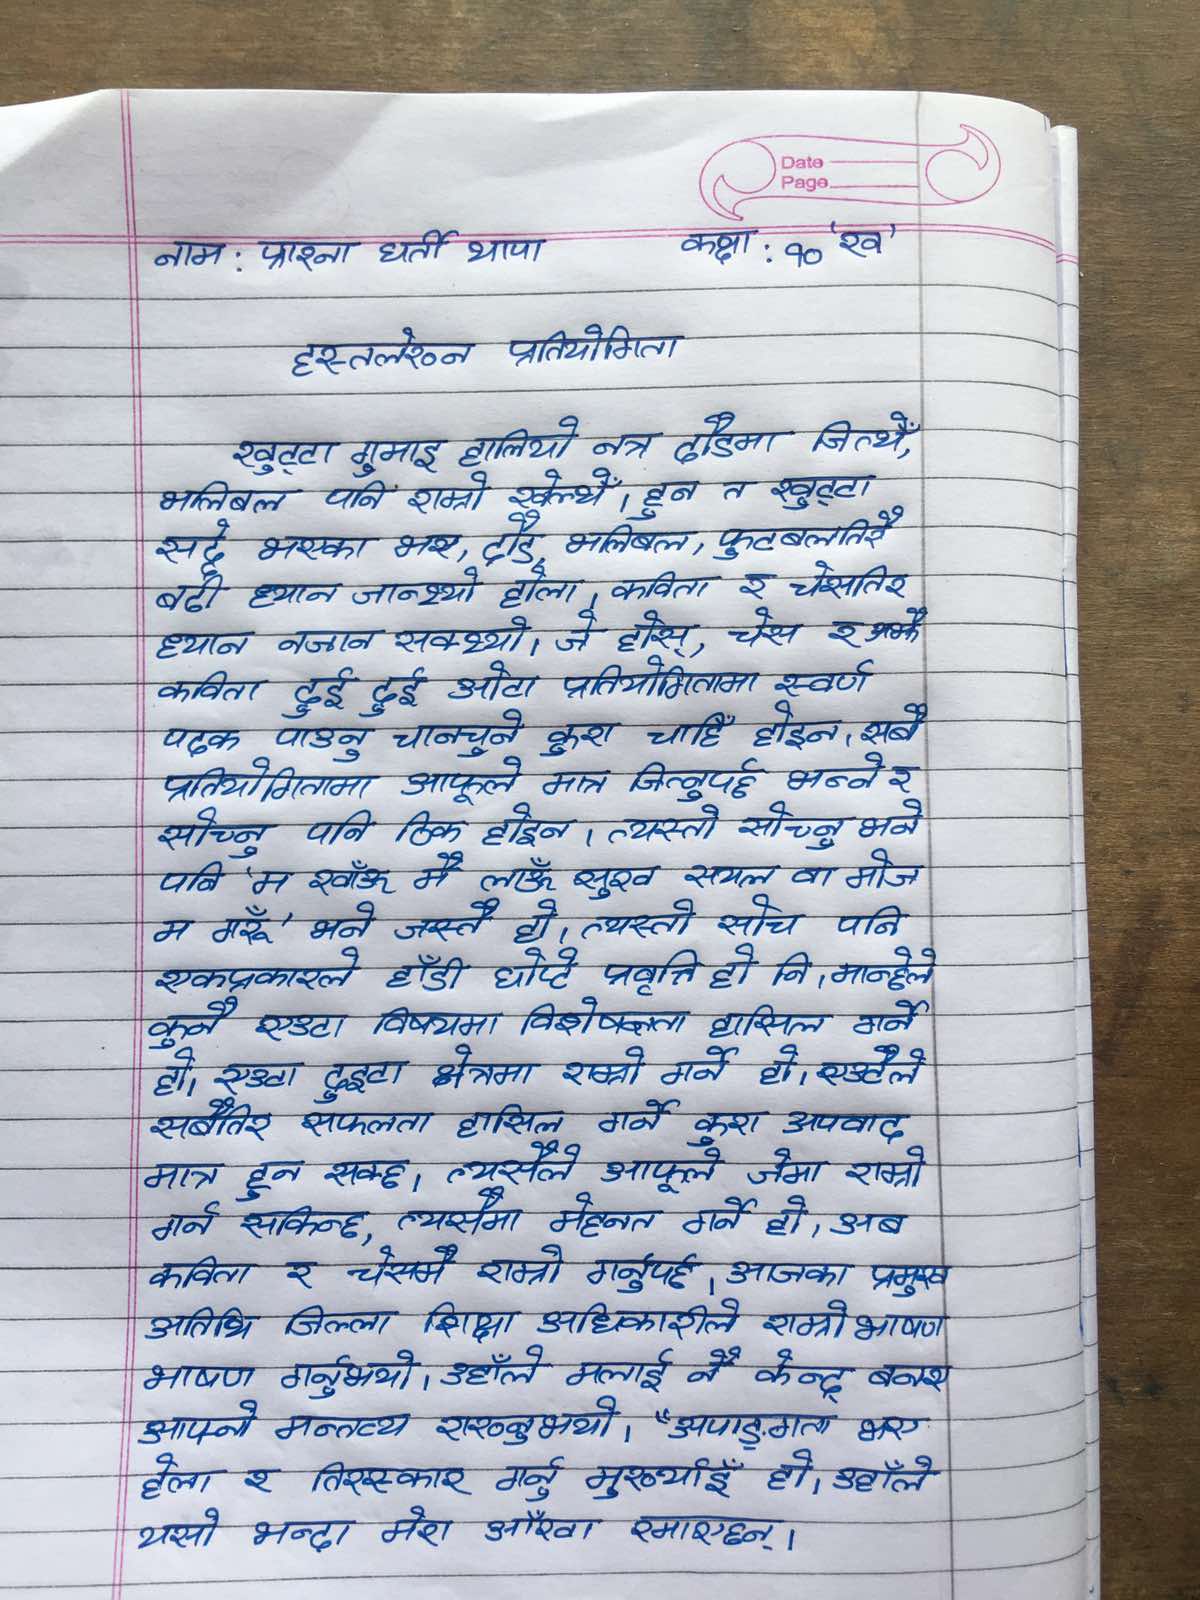 Date
Page
नाम : प्राश्ना घर्ती थापा कक्षा : १० 'ख'
हस्तलेखन प्रतियोगिता
खुट्टा गुमाइ हालियो नत्र दौडमा जित्थेँ,
भलिबल पनि राम्रो खेल्थेँ। हुन त खुट्टा
सद्दे भएका भए, दौड, भलिबल, फुटबलतिरै
बढी ध्यान जान्थ्यो होला। कविता र चेसतिर
ध्यान नजान सक्थ्यो। जे होस्, चेस र अझै
कविता दुई दुई ओटा प्रतियोगितामा स्वर्ण
पदक पाउनु चानचुने कुरा चाहिँ होइन। सबै
प्रतियोगितामा आफूले मात्र जित्नुपर्छ भन्ने र
सोच्नु पनि ठिक होइन। त्यस्तो सोच्नु भने
पनि 'म खाँऊ मै लाऊँ सुख सयल वा मोज
म गरूँ' भने जस्तै हो। त्यस्तो सोच पनि
एकप्रकारले हाँडी घोप्टे प्रवृत्ति हो नि। मान्छेले
कुनै एउटा विषयमा विशेषज्ञता हासिल गर्ने
हो। एउटा दुइटा क्षेत्रमा राम्रो गर्ने हो। एउटैले
सबैतिर सफलता हासिल गर्ने कुरा अपवाद
मात्र हुन सक्छ। त्यसैले आफूले जेमा राम्रो
गर्न सकिन्छ, त्यसैमा मेहनत गर्ने हो। अब
कविता र चेसमै राम्रो गर्नुपर्छ। आजका प्रमुख
अतिथि जिल्ला शिक्षा अधिकारीले राम्रो भाषण
भाषण गर्नुभयो। उहाँले मलाई नै केन्द्र बनाए
आफ्नो मन्तव्य राख्नुभयो। "अपाङ्गता भए
हेला र तिरस्कार गर्नु मुर्ख्याइँ हो। उहाँले
यसो भन्दा मेरा आँखा रमाएछन्।